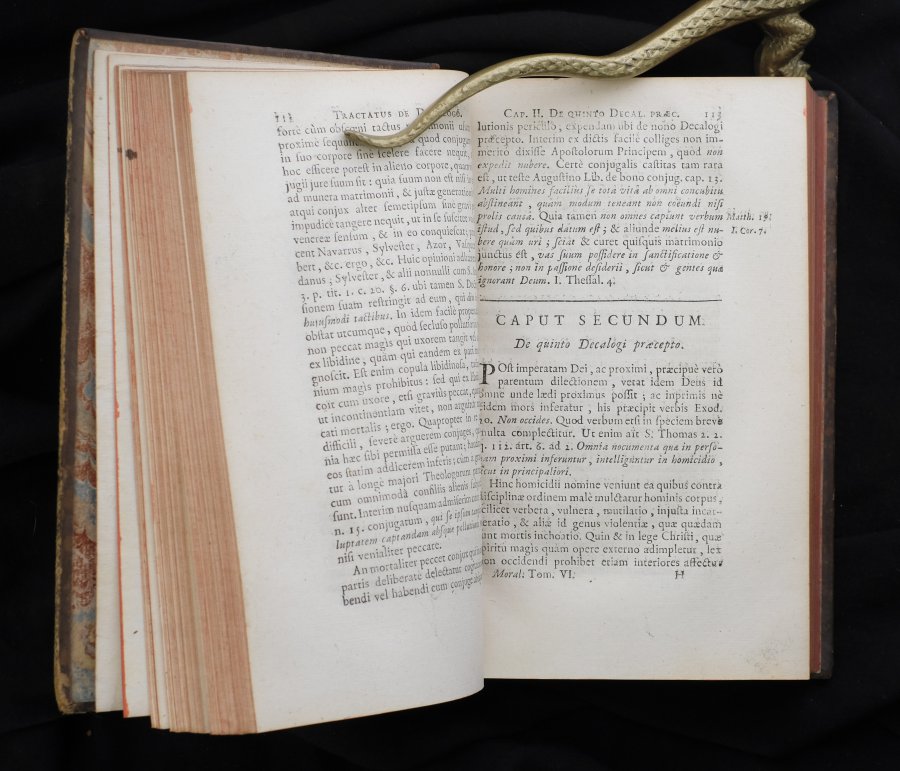 112 TRACTATUS DE
fortè cùm obscœni tactus
proximè
in suo corpore sine scelere facere nequit,
hoc efficere potest in alieno corpore, quam
jugii jure suum sit : quia suum non est nisi
ad munera matrimonii, & justæ generation
atqui conjux alter semetipsum sine gravi
impudicè tangere nequit, ut in se suscitet
venereæ sensum, & in eo conquiescat;
cent Navarrus, Sylvester, Azor,
bert, &c. ergo, &c. Huic opinioni
danus ; Sylvester, & alii nonnulli cum S.
3. p. tit. 1. c. 20. §. 6. ubi tamen S. Do
sionem suam restringit ad eum, qui
hujusmodi tactibus. In idem facilè
obstat utcumque, quod secluso pollutionis
non peccat magis qui uxorem tangit
ex libidine, quàm qui eandem ex pari
gnoscit. Est enim copula libidinosa,
nium magis prohibitus : sed qui ex
coit cum uxore, etsi graviùs peccat,
ut incontinentiam vitet, non arguitur
cati mortalis ; ergo. Quapropter in
difficili, severè arguerem conjuges,
nia hæc sibi permissa esse putant;
eos statim addicerem inferis; cùm
tur à longè majori Theologorum
cum omnimoda consiliis alienis
sunt. Interim nusquam admiserim
n. 15. conjugatum, qui se ipsum
luptatem captandam absque pollutionis
nisi venialiter peccare.
An mortaliter peccet conjux qui
partis deliberatè delectatur
bendi vel habendi cum conjuge
CAP. II. DE QUINTO DECAL. PRÆC. 113
lutionis periculo, expendam ubi de nono Decalogi
præcepto. Interim ex dictis facilè colliges non im-
meritò dixisse Apostolorum Principem, quod non
expedit nubere. Certè conjugalis castitas tam rara
est, ut teste Augustino Lib. de bono conjug. cap. 13.
Multi homines faciliùs se totâ vitâ ab omni concubitu
abstineant, quàm modum teneant non coëundi nisi
prolis causâ. Quia tamen non omnes capiunt verbum
istud, sed quibus datum est ; & aliunde melius est nu-
bere quàm uri ; sciat & curet quisquis matrimonio
junctus est, vas suum possidere in sanctificatione &
honore ; non in passione desiderii, sicut & gentes quæ
ignorant Deum. I. Thessal. 4.
Matth. 19.
I. Cor. 7.
CAPUT SECUNDUM.
De quinto Decalogi præcepto.
POst imperatam Dei, ac proximi, præcipuè verò
parentum dilectionem, vetat idem Deus id
omne unde lædi proximus possit ; ac inprimis nè
eidem mors inferatur, his præcipit verbis Exod.
20. Non occides. Quod verbum etsi in speciem breve
multa complectitur. Ut enim ait S. Thomas 2. 2.
q. 112. art. 6. ad 2. Omnia nocumenta quæ in perso-
nam proximi inferuntur, intelliguntur in homicidio,
sicut in principaliori.
Hinc homicidii nomine veniunt ea quibus contra
disciplinæ ordinem malè mulctatur hominis corpus,
scilicet verbera, vulnera, mutilatio, injusta incar-
ceratio, & aliæ id genus violentiæ, quæ quædam
sunt mortis inchoatio. Quin & in lege Christi, quæ
spiritu magis quàm opere externo adimpletur, lex
non occidendi prohibet etiam interiores affectus
Moral. Tom. VI. H